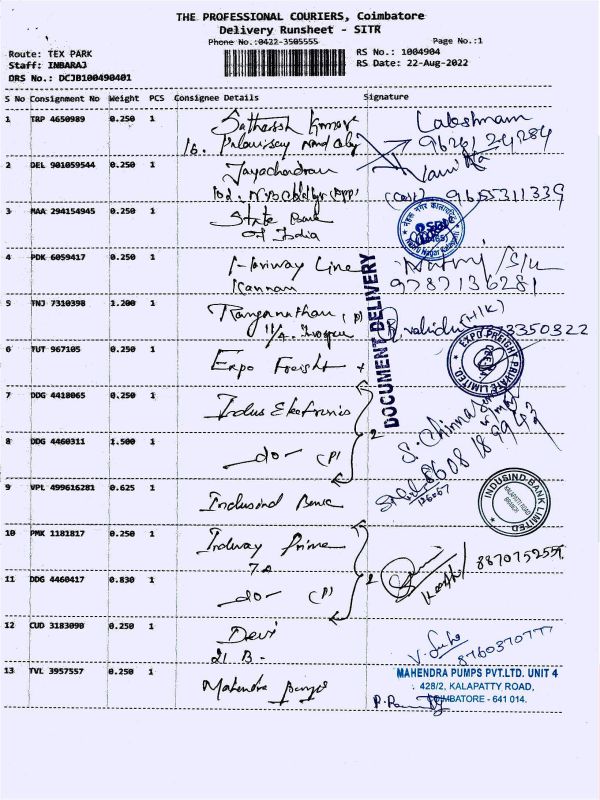 THE PROFESSIONAL COURIERS, Coimbatore
Delivery Runsheet - SITR
Phone No.:0422-3505555 Page No.:1
Route: TEX PARK RS No.: 1004904
Staff: INBARAJ RS Date: 22-Aug-2022
DRS No.: DCJB100490401
S No Consignment No Weight PCS Consignee Details Signature
1 TRP 4650989 0.250 1 Lakshmanan
16. 9626124284
2 DEL 901059544 0.250 1 Jayachandran
9655311339
3 MAA 294154945 0.250 1 State Bank
Of India
4 PDK 6059417 0.250 1 Hariway Line
Kannan 9787136281
DOCUMENT DELIVERY
5 TNJ 7310398 1.200 1 Ranganathan (P)
11/A.
6 TUT 967105 0.250 1 Expo Freight
EXPO FREIGHT PRIVATE LIMITED.
7 DDG 4418065 0.250 1 Indus Electronics
2
8 DDG 4460311 1.500 1 -do- (P)
9 VPL 499616281 0.625 1 Indusind Bank
INDUSIND BANK LIMITED
KALAPATTI ROAD
BRANCH
10 PMK 1181817 0.250 1 Indway Prime
7A
2
11 DDG 4460417 0.830 1 -do- (P)
12 CUD 3183090 0.250 1 Devi
21 B.
13 TVL 3957557 0.250 1 Mahendra Pumps
MAHENDRA PUMPS PVT.LTD. UNIT 4
428/2, KALAPATTY ROAD,
COIMBATORE - 641 014.